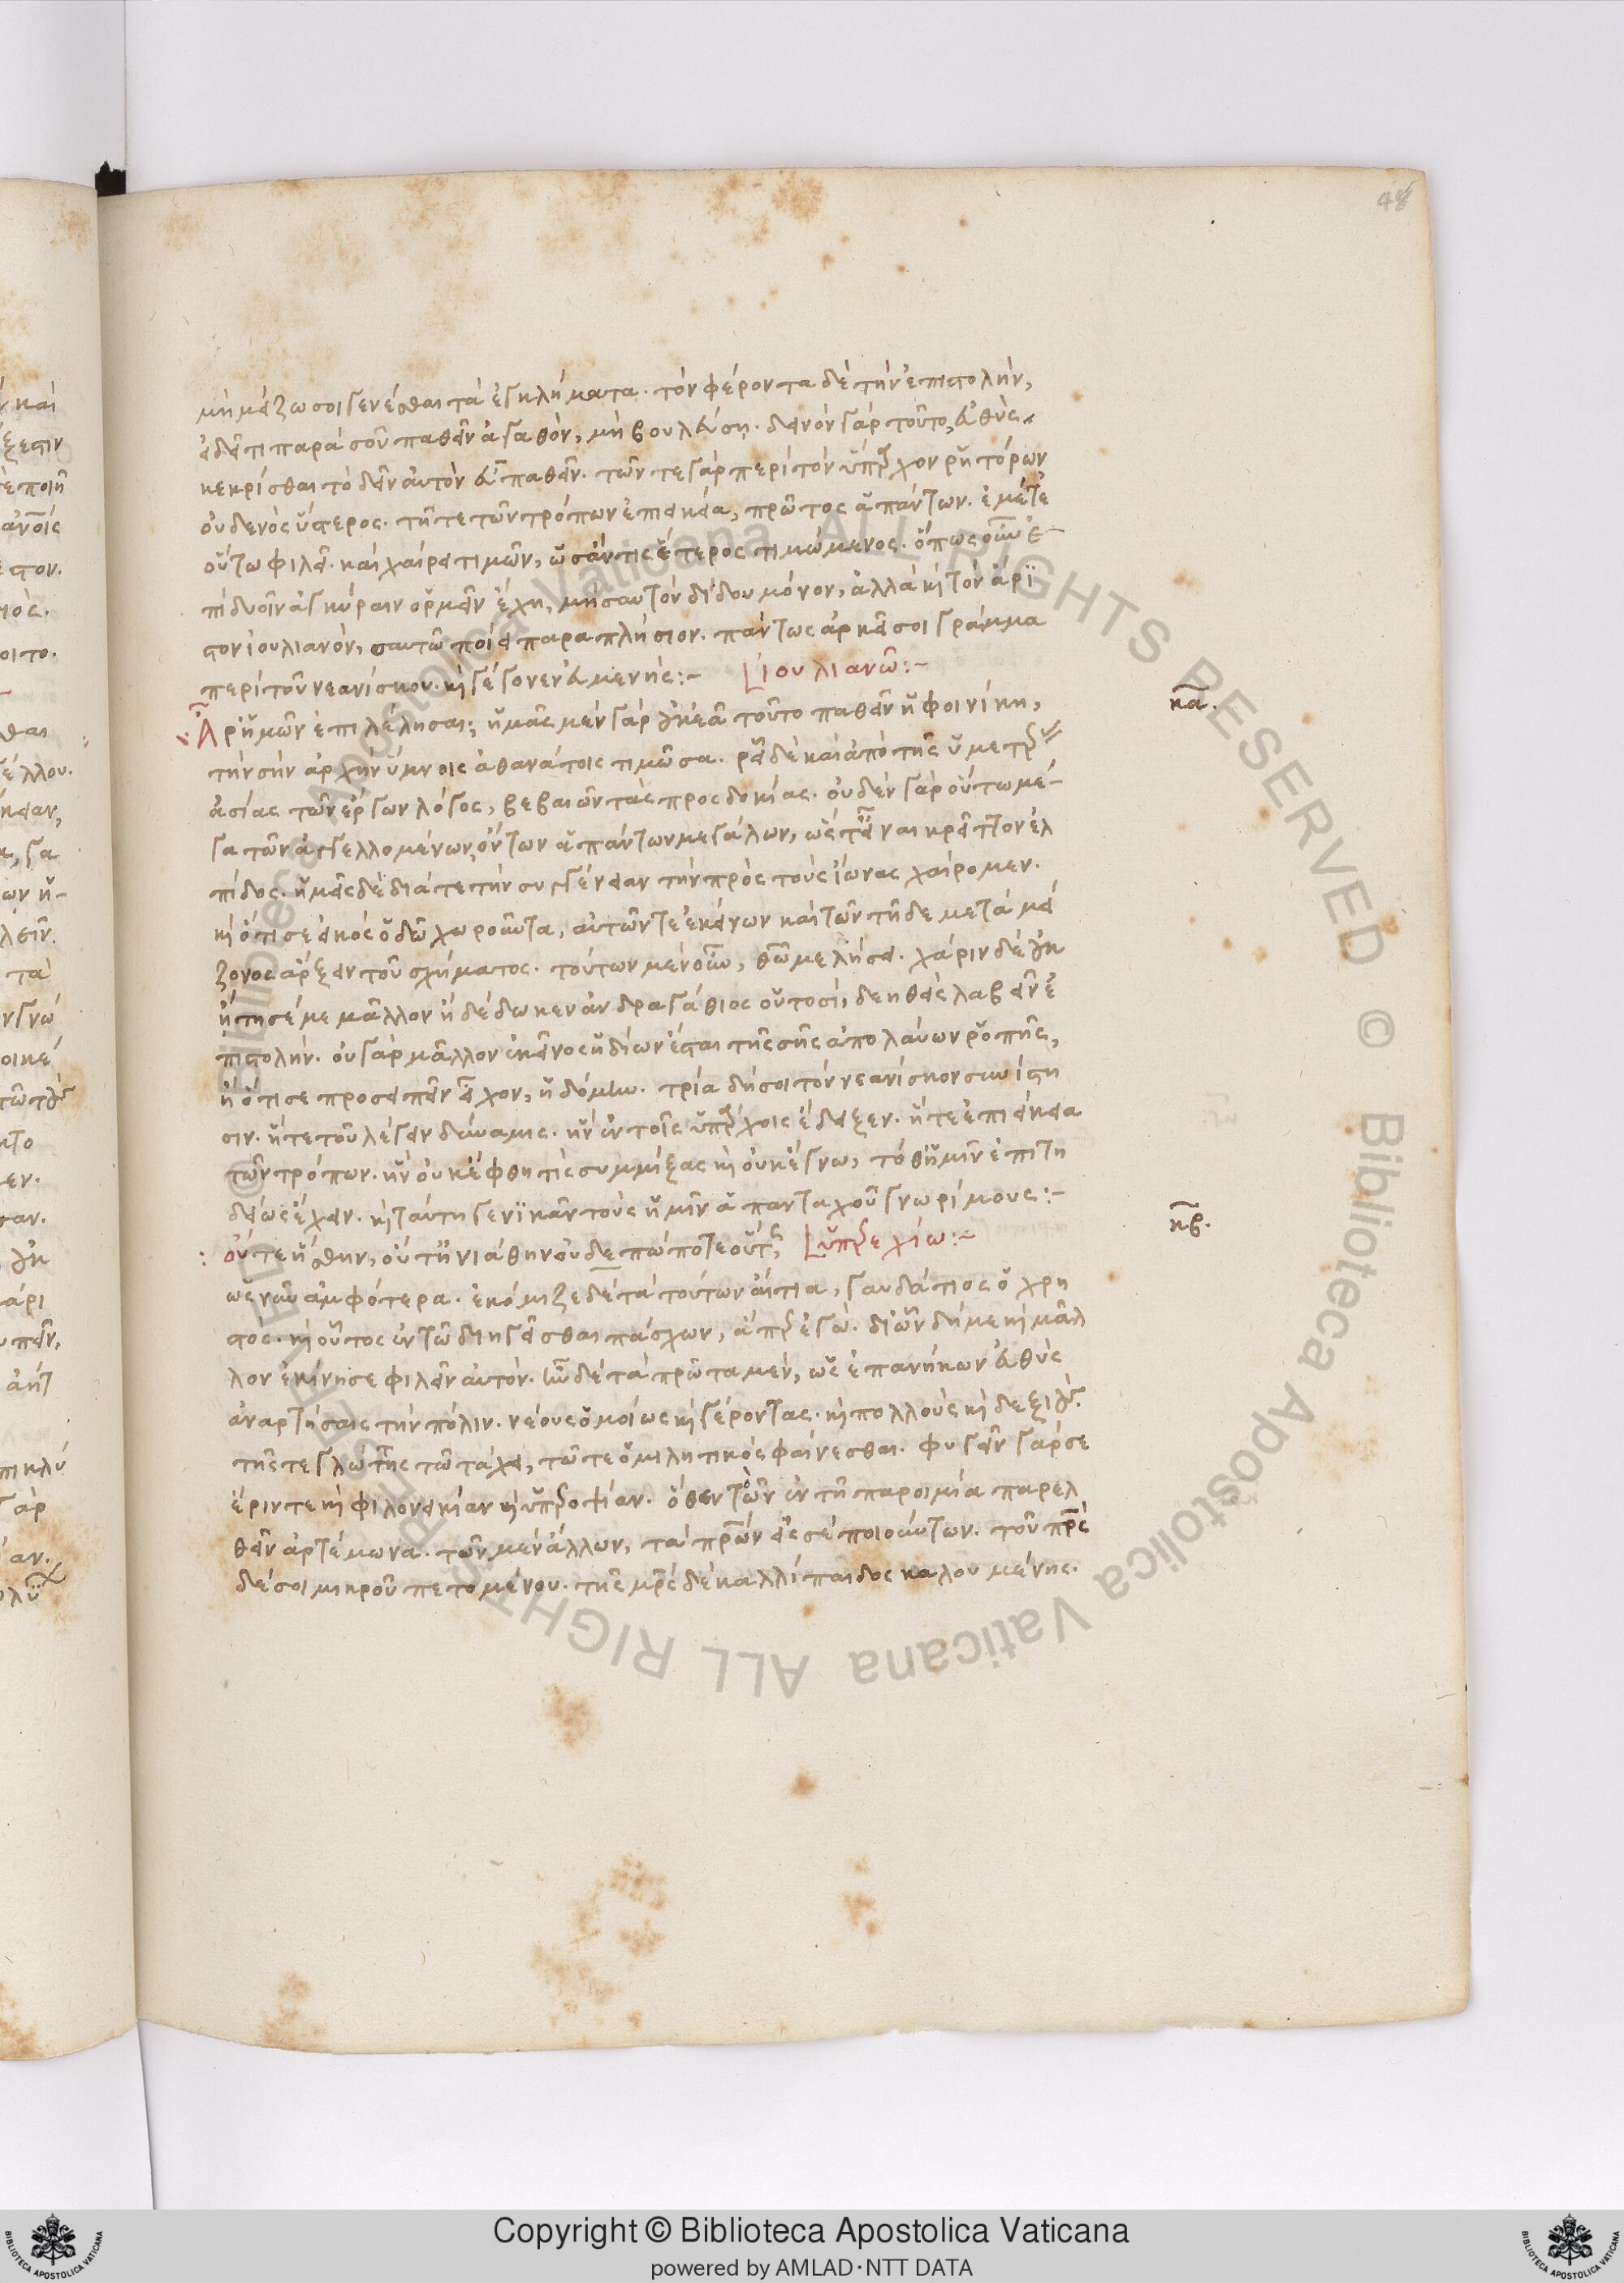 48
μὴ μείζω σοι γενέσθαι τὰ ἐγκλήματα. τὸν φέροντα δὲ τὴν ἐπιστολὴν,
εἰ δεῖ τι παρὰ σοῦ παθεῖν ἀγαθὸν, μὴ βουλεύσῃ. δεινὸν γὰρ τοῦτο, εὐθὺς
κεκρίσθαι τὸ δεῖν αὐτὸν εὖ παθεῖν. τῶν τε γὰρ περὶ τὸν ὕπαρχον ῥητόρων
οὐδενὸς ὕστερος. τῇ τε τῶν τρόπων ἐπιεικείᾳ, πρῶτος ἁπάντων. ἐμέ τε
οὕτω φιλεῖ. καὶ χαίρει τιμῶν, ὡς ἄν τις ἕτερος τιμώμενος. ὅπως οὖν ἐ-
πὶ δυοῖν ἀγκύραιν ὁρμεῖν ἔχῃ, μὴ σαυτὸν δίδου μόνον, ἀλλὰ κὶ τὸν ἄρι
στον ἰουλιανὸν, σαυτῷ ποίει παραπλήσιον. πάντως ἀρκεῖ σοι γράμμα
περὶ τοῦ νεανίσκου. κὶ γέγονεν εὐμενής:- ἰουλιανῷ:-
κα.
Ἆρ' ἡμῶν ἐπιλέλησαι; ἡμᾶς μὲν γὰρ οὐκ ἐᾷ τοῦτο παθεῖν ἡ φοινίκη,
τὴν σὴν ἀρχὴν ὕμνοις ἀθανάτοις τιμῶσα. ῥεῖ δὲ καὶ ἀπὸ τῆς ὑμετέρας
ἀσίας τῶν ἔργων λόγος, βεβαιῶν τὰς προσδοκίας. οὐδὲν γὰρ οὕτω μέ-
γα τῶν ἀγγελλομένων, ὄντων ἁπάντων μεγάλων, ὥστ' εἶναι κρεῖττον ἐλ
πίδος. ἡμεῖς δὲ διά τε τὴν συγγένειαν τὴν πρὸς τοὺς ἴωνας χαίρομεν.
κὶ ὅτι σε εἰκὸς ὁδῷ χωροῦντα, αὐτῶν τε ἐκείνων καὶ τῶν τῇδε μετὰ μεί
ζονος ἄρξειν τοῦ σχήματος. τούτων μὲν οὖν, θεῷ μελήσει. χάριν δὲ οὐκ
ᾔτησέ με μᾶλλον ἢ δέδωκεν ἀνδραγάθιος οὑτοσὶ, δεηθεὶς λαβεῖν ἐ
πιστολήν. οὐ γὰρ μᾶλλον ἐκεῖνος ἡδίων ἔσται τῆς σῆς ἀπολαύων ῥοπῆς,
ἢ ὅτι σε προσειπεῖν εἶχον, ἡδόμην. τρία δή σοι τὸν νεανίσκον συνίστη
σιν. ἥ τε τοῦ λέγειν δύναμις. ἣν ἐν τοῖς ὑπάρχοις ἔδειξεν. ἥ τε ἐπιείκεια
τῶν τρόπων. ἣν οὐκ ἔφθη τις συμμίξας κὶ οὐκ ἔγνω, τό θ' ἡμῖν ἐπιτη
δείως ἔχειν. κὶ ταύτῃ γε νικᾶν τοὺς ἡμῖν ἁπανταχοῦ γνωρίμους:-
κβ.
οὔτε ἥσθην, οὔτ' ἠνιάθην οὐδεπώποτε οὕτως, ὑπερεχίῳ:-
ὡς νῦν ἀμφότερα. ἐκόμιζε δὲ τὰ τούτων αἴτια, γαυδάτιος ὁ χρη
στός. κὶ οὗτος ἐν τῷ διηγεῖσθαι πάσχων, ἅπερ ἐγώ. δι' ὧν δή με κὶ μᾶλ
λον ἐκίνησε φιλεῖν αὐτόν. ἦν δὲ τὰ πρῶτα μὲν, ὡς ἐπανήκων εὐθὺς
ἀναρτήσαις τὴν πόλιν. νέους ὁμοίως κὶ γέροντας. κὶ πολλοὺς κὶ δεξιοὺς.
τῆς τε γλώττης τῷ τάχει, τῷ τε ὁμιλητικὸς φαίνεσθαι. φυγεῖν γάρ σε
ἔριν τε κὶ φιλονεικίαν κὶ ὑπεροψίαν. ὅθεν τὸν ἐν τῇ παροιμίᾳ παρελ
θεῖν ἀρτέμωνα. τῶν μὲν ἄλλων, τὰ πρώων εἰς σὲ ποιούντων. τοῦ πρς
δέ σοι μικροῦ πετομένου. τῆς μρς δὲ καλλίπαιδος καλουμένης.
Copyright © Biblioteca Apostolica Vaticana
powered by AMLAD·NTT DATA